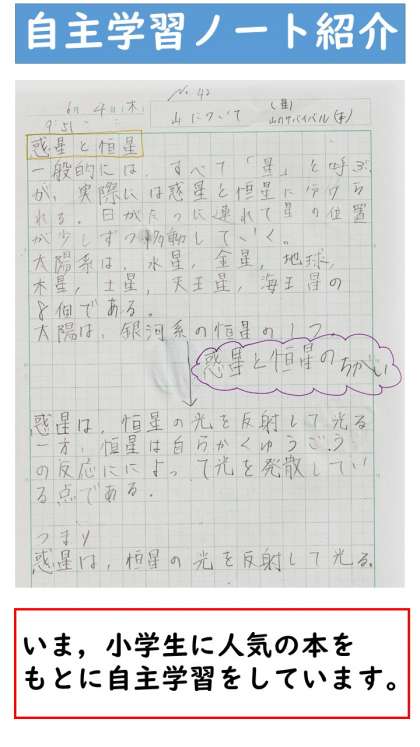 自主学習ノート紹介
No. 42
6月 4日(木)
9:51
山について
(星)
山のサバイバル(本)
惑星と恒星
一般的には、すべて「星」と呼ぶ
が、実際には惑星と恒星に分けら
れる。日がたつに連れて星の位置
が少しずつ移動していく。
太陽系は、水星、金星、地球、
木星、土星、天王星、海王星の
8個である。
太陽は、銀河系の恒星の1つ。
惑星と恒星のちがい
惑星は、恒星の光を反射して光る
一方、恒星は自らかくゆうごう
の反応にによって光を発散してい
る点である。
つまり
惑星は、恒星の光を反射して光る。
いま，小学生に人気の本を
もとに自主学習をしています。